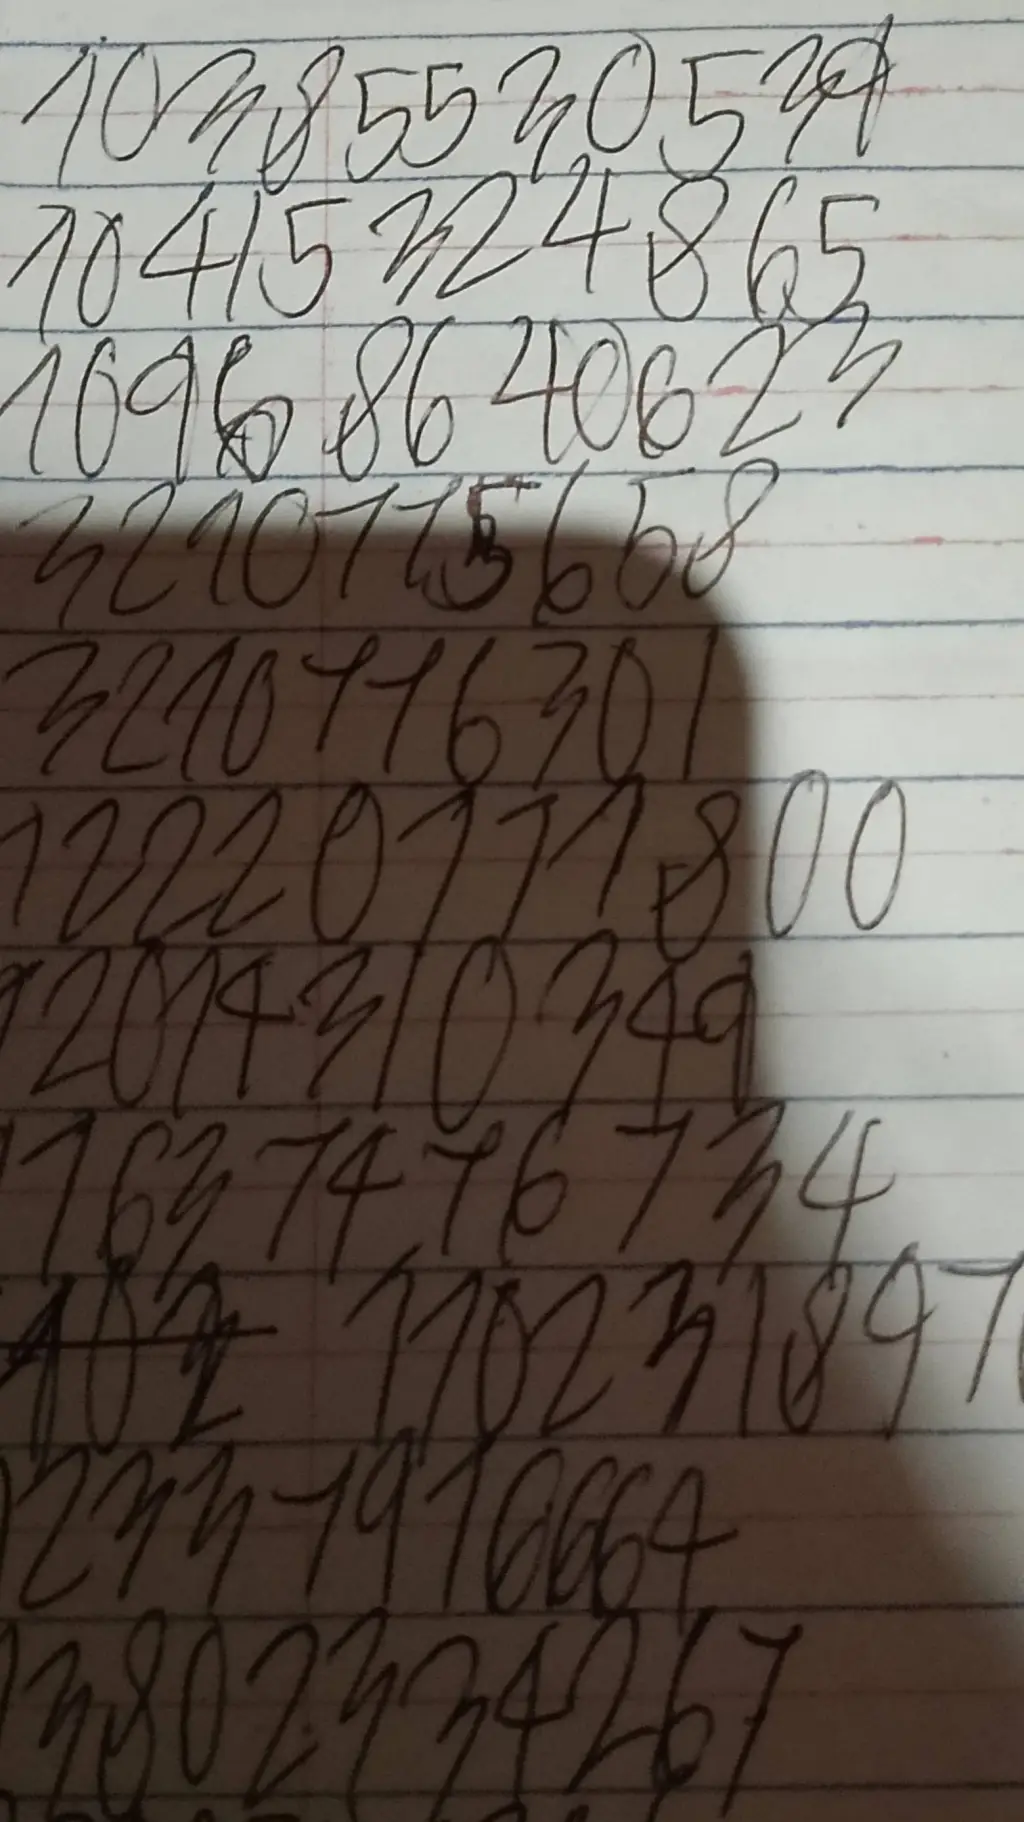 10385530539
10415324865
10968640623
3210775658
3210776301
12220771800
12014310349
17637476734
102 110231897
12337976664
13802334267